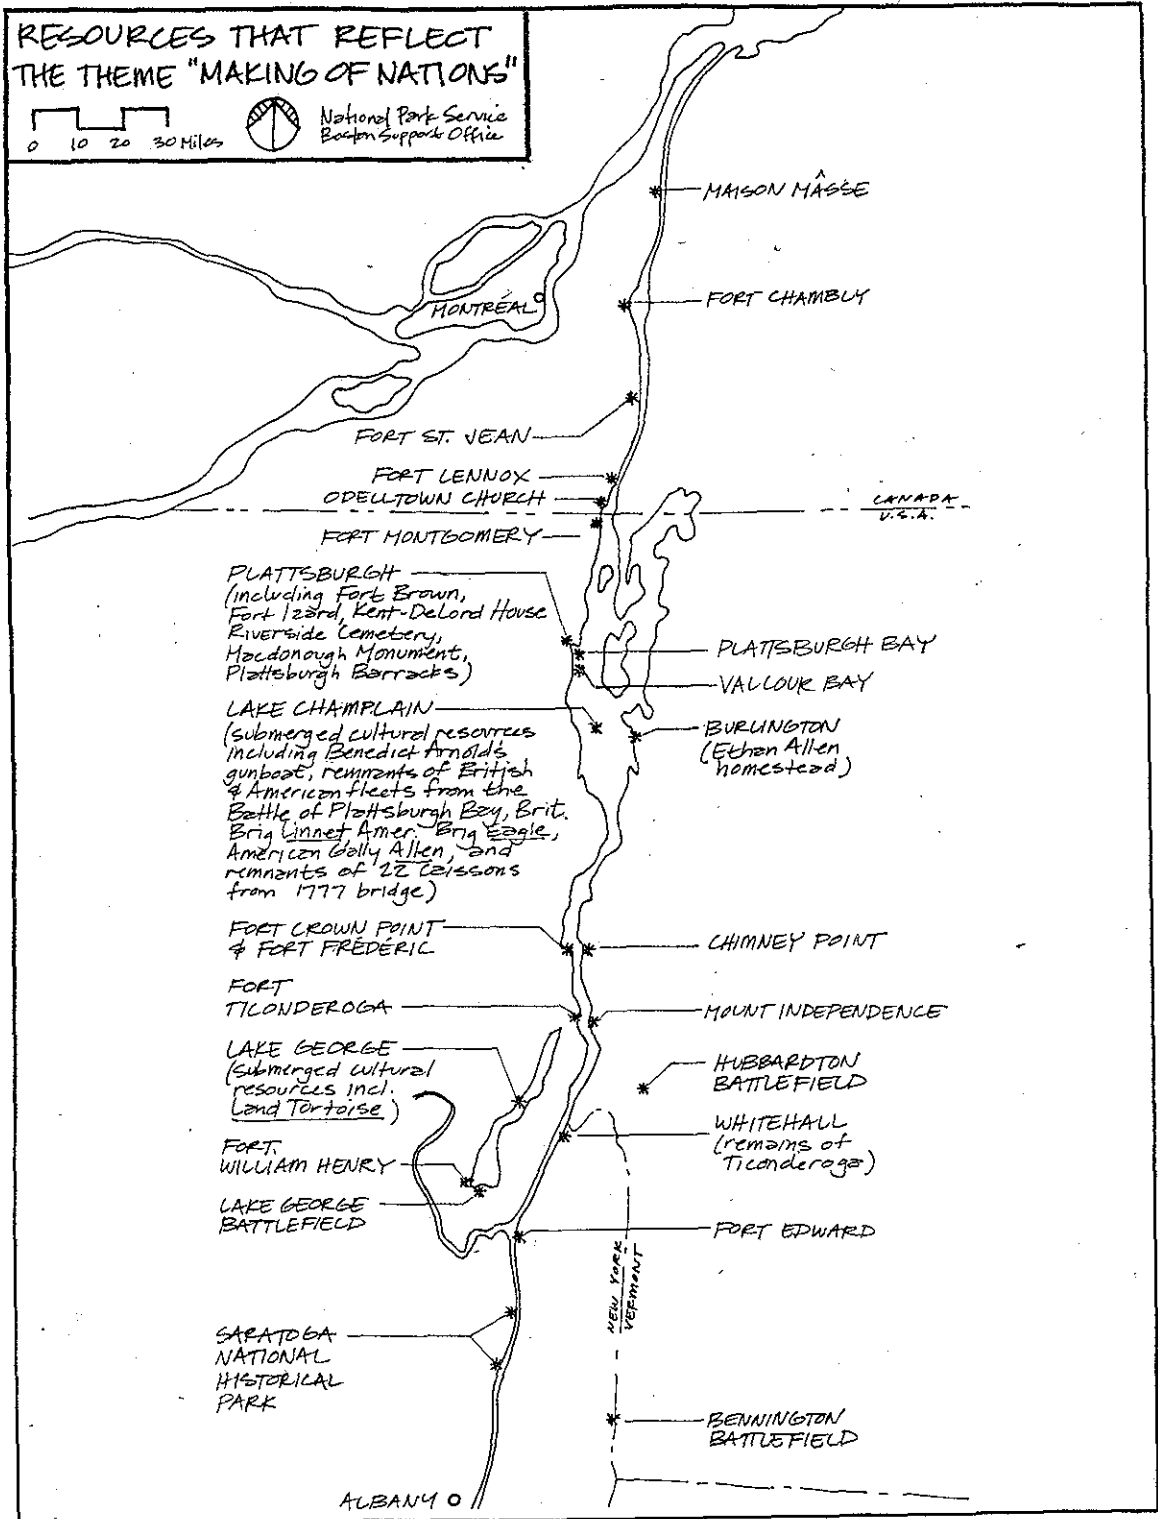 RESOURCES THAT REFLECT
THE THEME "MAKING OF NATIONS"
0 10 20 30 Miles
National Park Service
Boston Support Office
MAISON MÂSSE
MONTRÉAL
FORT CHAMBLY
FORT ST. JEAN
FORT LENNOX
ODELLTOWN CHURCH
CANADA
U.S.A.
FORT MONTGOMERY
PLATTSBURGH
(including Fort Brown,
Fort Izard, Kent-DeLord House
Riverside Cemetery,
Macdonough Monument,
Plattsburgh Barracks)
PLATTSBURGH BAY
VALCOUR BAY
LAKE CHAMPLAIN
(submerged cultural resources
including Benedict Arnold's
gunboat, remnants of British
& American fleets from the
Battle of Plattsburgh Bay, Brit.
Brig Linnet, Amer. Brig Eagle,
American Gally Allen, and
remnants of 22 caissons
from 1777 bridge)
BURLINGTON
(Ethan Allen
homestead)
FORT CROWN POINT
& FORT FRÉDÉRIC
CHIMNEY POINT
FORT
TICONDEROGA
MOUNT INDEPENDENCE
LAKE GEORGE
(submerged cultural
resources incl.
Land Tortoise)
HUBBARDTON
BATTLEFIELD
WHITEHALL
(remains of
Ticonderoga)
FORT
WILLIAM HENRY
LAKE GEORGE
BATTLEFIELD
FORT EDWARD
NEW YORK
VERMONT
SARATOGA
NATIONAL
HISTORICAL
PARK
BENNINGTON
BATTLEFIELD
ALBANY